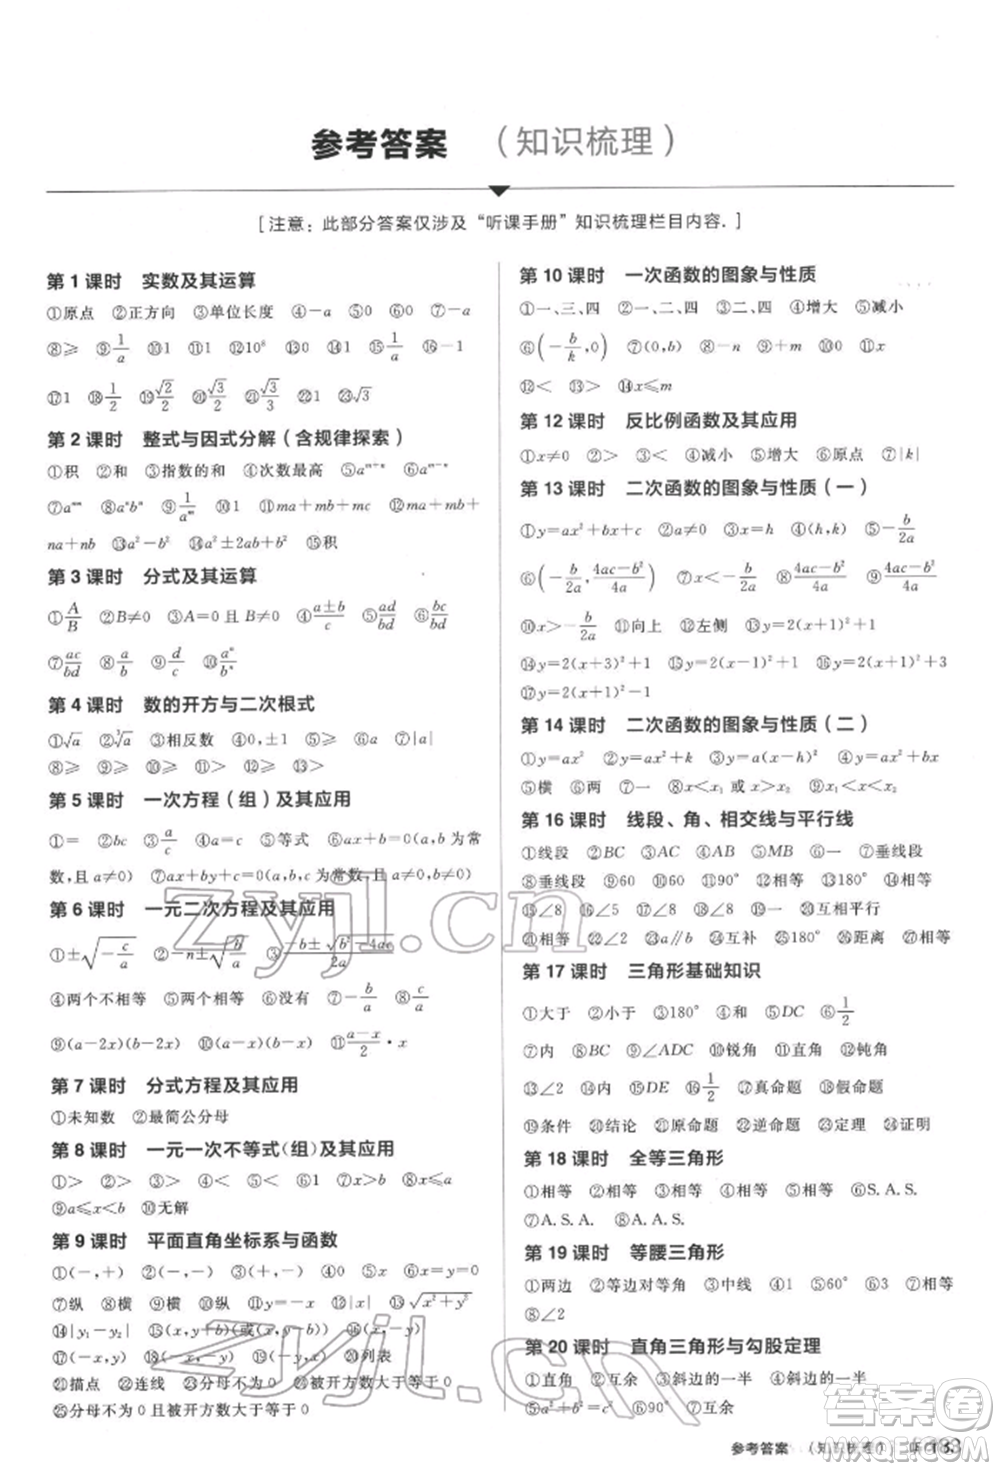 参考答案 （知识梳理）
［注意：此部分答案仅涉及“听课手册”知识梳理栏目内容．］
第 1 课时 实数及其运算
①原点 ②正方向 ③单位长度 ④-a ⑤0 ⑥0 ⑦-a
⑧≥ ⑨1/a ⑩1 ⑪1 ⑫10⁸ ⑬1 ⑭1 ⑮1/a ⑯-1
⑰1 ⑱1/2 ⑲√2/2 ⑳√3/2 ㉑√3/3 ㉒1 ㉓√3
第 2 课时 整式与因式分解（含规律探索）
①积 ②和 ③指数的和 ④次数最高 ⑤aᵐ⁺ⁿ ⑥aᵐ⁻ⁿ
⑦aᵐⁿ ⑧aⁿbⁿ ⑨1/aᵐ ⑩1 ⑪ma+mb+mc ⑫ma+mb+
na+nb ⑬a²-b² ⑭a²±2ab+b² ⑮积
第 3 课时 分式及其运算
①A/B ②B≠0 ③A=0 且 B≠0 ④(a±b)/c ⑤ad/bd ⑥bc/bd
⑦ac/bd ⑧a/b ⑨d/c ⑩aⁿ/bⁿ
第 4 课时 数的开方与二次根式
①√a ②³√a ③相反数 ④0,±1 ⑤a ⑥a ⑦|a|
⑧≥ ⑨≥ ⑩≥ ⑪> ⑫≥ ⑬≥ ⑭>
第 5 课时 一次方程（组）及其应用
①= ②bc ③a/c ④a=c ⑤等式 ⑥ax+b=0(a,b 为常
数,a≠0) ⑦ax+by+c=0(a,b,c 为常数,a≠0,b≠0)
第 6 课时 一元二次方程及其应用
①±√(-c/a) ②-n±√(b/a) ③(-b±√(b²-4ac))/2a
④两个不相等 ⑤两个相等 ⑥没有 ⑦-b/a ⑧c/a
⑨(a-2x)(b-2x) ⑩(a-x)(b-x) ⑪(a-x)/2·x
第 7 课时 分式方程及其应用
①未知数 ②最简公分母
第 8 课时 一元一次不等式(组)及其应用
①> ②> ③> ④< ⑤1 ⑥1 ⑦x>b ⑧x≤a
⑨a≤x<b ⑩无解
第 9 课时 平面直角坐标系与函数
①(-,+) ②(-,-) ③(+,-) ④x=0 ⑤y=0
⑦纵 ⑧横 ⑨横 ⑩纵 ⑬√(x²+y²)
⑭|y₁-y₂| ⑮(x,y+b)(或(x,y-b)) ⑯(x,-y)
⑰(-x,y) ⑱(-x,-y) ⑲(y,x) ⑳列表
㉑描点 ㉒连线 ㉓分母不为 0 ㉔被开方数大于等于 0
㉕分母不为 0 且被开方数大于等于 0
第 10 课时 一次函数的图象与性质
①一、三、四 ②增大 ③减小 ④增大 ⑤减小
⑥(-b/k,0) ⑦(0,b) ⑧-n ⑨+m ⑩b ⑪x
⑫< ⑬> ⑭x≤m
第 12 课时 反比例函数及其应用
①x≠0 ②> ③< ④减小 ⑤增大 ⑥原点 ⑦|k|
第 13 课时 二次函数的图象与性质（一）
①y=ax²+bx+c ②a≠0 ③x=h ④(h,k) ⑤-b/2a
⑥(-b/2a,(4ac-b²)/4a) ⑦x<-b/2a ⑧(4ac-b²)/4a ⑨(4ac-b²)/4a
⑩x>-b/2a ⑪向上 ⑫左侧 ⑬y=2(x+1)²+1
⑭y=2(x+3)²+1 ⑮y=2(x+1)²-1 ⑯y=2(x+1)²+3
⑰y=2(x+1)²-1
第 14 课时 二次函数的图象与性质（二）
①y=ax² ②y=ax²+k ③y=a(x-h)² ④y=ax²+bx
⑤横 ⑥两 ⑦一 ⑧x<x₁ 或 x>x₂ ⑨x₁<x<x₂
第 16 课时 线段、角、相交线与平行线
①线段 ②BC ③AC ④AB ⑤BM ⑥一 ⑦垂线段
⑧垂线段 ⑨60 ⑩60 ⑪90° ⑫相等 ⑬180° ⑭相等
⑮∠8 ⑯∠7 ⑰∠8 ⑱∠8 ⑲一 ⑳互相平行
㉑相等 ㉒∠2 ㉓a∥b ㉔互补 ㉕180° ㉖距离 ㉗相等
第 17 课时 三角形基础知识
①大于 ②小于 ③180° ④和 ⑤DC ⑥1/2
⑦内 ⑧BC ⑨∠ADC ⑩锐角 ⑪直角 ⑫钝角
⑬∠2 ⑭外 ⑮DE ⑯1/2 ⑰真命题 ⑱假命题
⑲条件 ⑳结论 ㉑原命题 ㉒逆命题 ㉓定理 ㉔证明
第 18 课时 全等三角形
①相等 ②相等 ③相等 ④相等 ⑤相等 ⑥S.A.S.
⑦A.S.A. ⑧A.A.S. ⑨S.S.S. ⑩H.L.
第 19 课时 等腰三角形
①两边 ②等边对等角 ③中线 ④1 ⑤相等 ⑦相等
⑧∠2
第 20 课时 直角三角形与勾股定理
①直角 ②互余 ③斜边的一半 ④斜边的一半
⑤a²+b²=c² ⑥90° ⑦互余
参考答案 （知识梳理） 183
zyjl.cn
zyjl.cn
答案圈